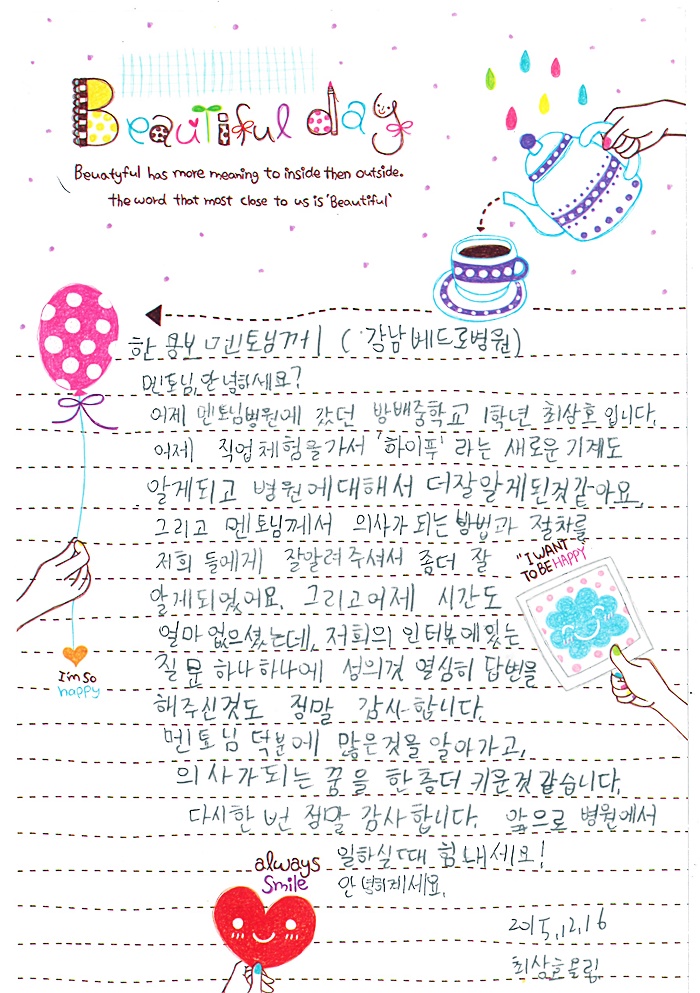 Beautiful day
Beuatyful has more meaning to inside then outside.
the word that most close to us is 'Beautiful'
한 봉보 멘토님께 (강남베드로병원)
멘토님, 안녕하세요?
어제 멘토님병원에 갔던 방배중학교 1학년 최상호입니다.
어제 직업체험을가서 '하이푸' 라는 새로운 기계도
알게되고 병원에대해서 더잘알게된것같아요.
그리고 멘토님께서 의사가 되는 방법과 절차를
저희 들에게 잘알려주셔서 좀더 잘
"I WANT
TO BE HAPPY"
알게되었어요. 그리고어제 시간도
얼마 없으셨는데, 저희의 인터뷰에있는
질문 하나하나에 성의껏 열심히 답변을
I'm so
happy
해주신것도 정말 감사합니다.
멘토님 덕분에 많은것을 알아가고,
의사가되는 꿈을 한층더 키운것같습니다.
다시한 번 정말 감사합니다. 앞으로 병원에서
일하실때 힘내세요!
always
smile
안녕하계세요.
2015.12.16
최상호올림.